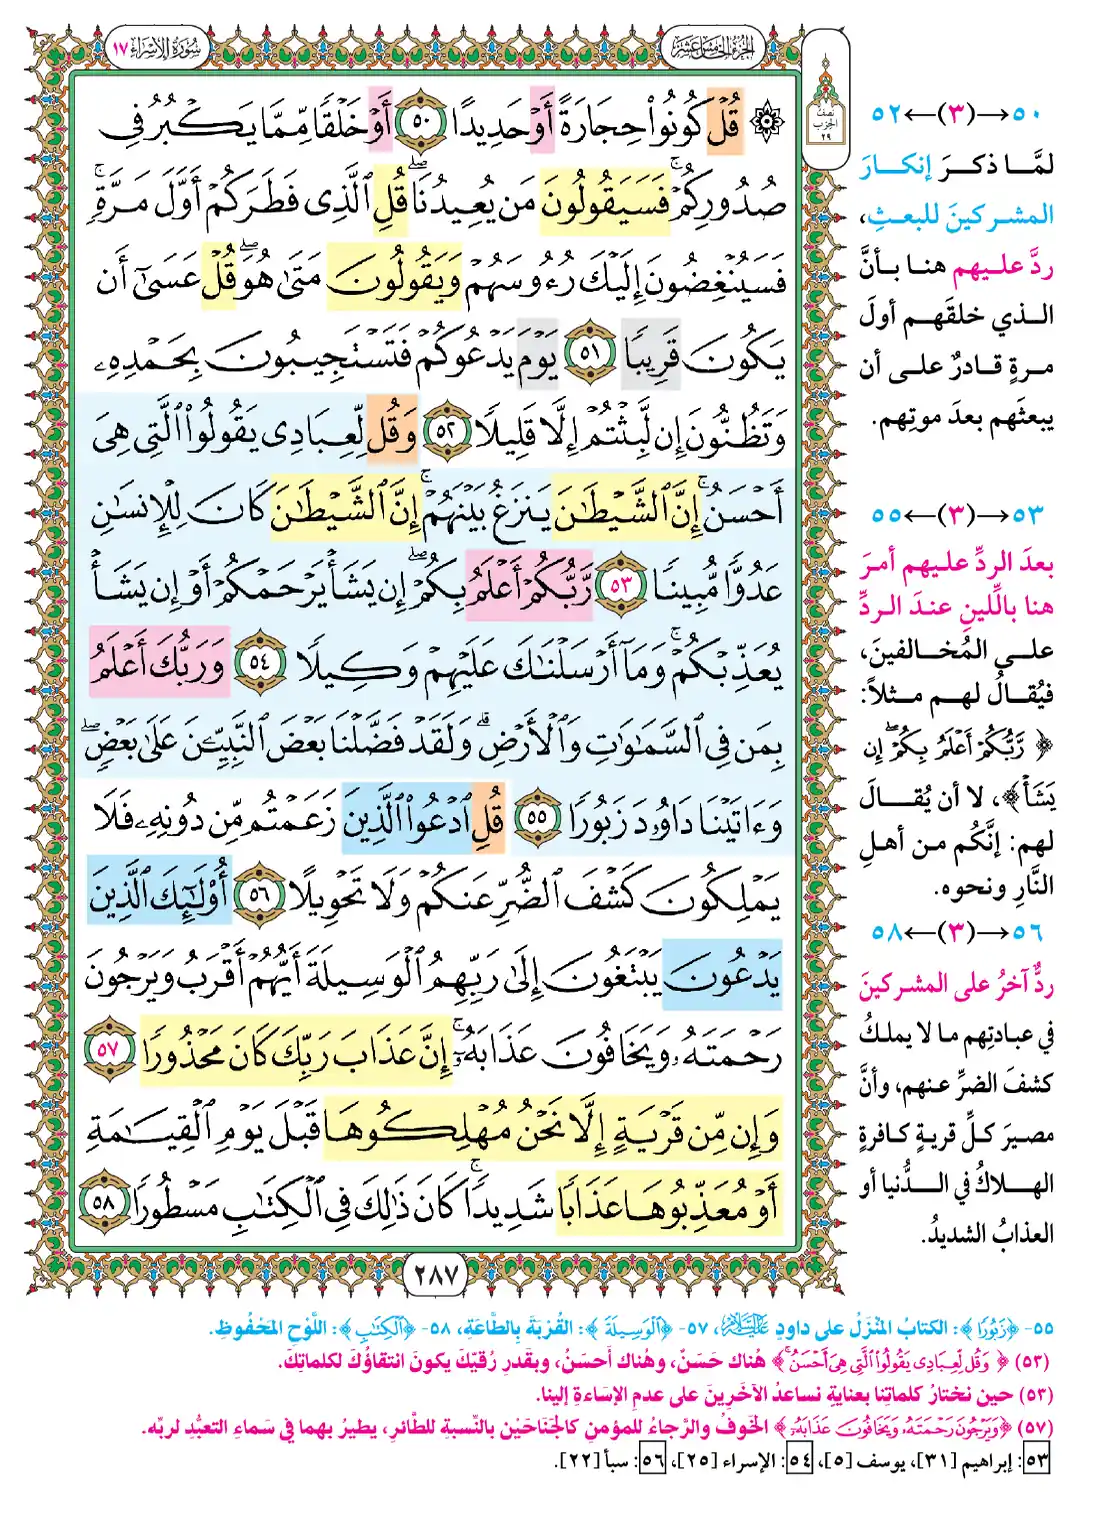 سُورَةُ الإِسْرَاء ١٧
الجُزْءُ الخَامِسَ عَشَرَ
نصف
الحزب
٢٩
۞ قُلْ كُونُوا۟ حِجَارَةً أَوْ حَدِيدًا ٥٠ أَوْ خَلْقًا مِّمَّا يَكْبُرُ فِى
صُدُورِكُمْ ۚ فَسَيَقُولُونَ مَن يُعِيدُنَا ۖ قُلِ ٱلَّذِى فَطَرَكُمْ أَوَّلَ مَرَّةٍ ۚ
فَسَيُنْغِضُونَ إِلَيْكَ رُءُوسَهُمْ وَيَقُولُونَ مَتَىٰ هُوَ ۖ قُلْ عَسَىٰٓ أَن
يَكُونَ قَرِيبًا ٥١ يَوْمَ يَدْعُوكُمْ فَتَسْتَجِيبُونَ بِحَمْدِهِۦ
وَتَظُنُّونَ إِن لَّبِثْتُمْ إِلَّا قَلِيلًا ٥٢ وَقُل لِّعِبَادِى يَقُولُوا۟ ٱلَّتِى هِىَ
أَحْسَنُ ۚ إِنَّ ٱلشَّيْطَـٰنَ يَنزَغُ بَيْنَهُمْ ۚ إِنَّ ٱلشَّيْطَـٰنَ كَانَ لِلْإِنسَـٰنِ
عَدُوًّا مُّبِينًا ٥٣ رَّبُّكُمْ أَعْلَمُ بِكُمْ ۖ إِن يَشَأْ يَرْحَمْكُمْ أَوْ إِن يَشَأْ
يُعَذِّبْكُمْ ۚ وَمَآ أَرْسَلْنَـٰكَ عَلَيْهِمْ وَكِيلًا ٥٤ وَرَبُّكَ أَعْلَمُ
بِمَن فِى ٱلسَّمَـٰوَٰتِ وَٱلْأَرْضِ ۗ وَلَقَدْ فَضَّلْنَا بَعْضَ ٱلنَّبِيِّـۧنَ عَلَىٰ بَعْضٍ ۖ
وَءَاتَيْنَا دَاوُۥدَ زَبُورًا ٥٥ قُلِ ٱدْعُوا۟ ٱلَّذِينَ زَعَمْتُم مِّن دُونِهِۦ فَلَا
يَمْلِكُونَ كَشْفَ ٱلضُّرِّ عَنكُمْ وَلَا تَحْوِيلًا ٥٦ أُو۟لَـٰٓئِكَ ٱلَّذِينَ
يَدْعُونَ يَبْتَغُونَ إِلَىٰ رَبِّهِمُ ٱلْوَسِيلَةَ أَيُّهُمْ أَقْرَبُ وَيَرْجُونَ
رَحْمَتَهُۥ وَيَخَافُونَ عَذَابَهُۥٓ ۚ إِنَّ عَذَابَ رَبِّكَ كَانَ مَحْذُورًا ٥٧
وَإِن مِّن قَرْيَةٍ إِلَّا نَحْنُ مُهْلِكُوهَا قَبْلَ يَوْمِ ٱلْقِيَـٰمَةِ
أَوْ مُعَذِّبُوهَا عَذَابًا شَدِيدًا ۚ كَانَ ذَٰلِكَ فِى ٱلْكِتَـٰبِ مَسْطُورًا ٥٨
٢٨٧
٥٠→(٣)←٥٢
لمَّا ذكرَ إنكارَ
المشركينَ للبعثِ،
ردَّ عليهم هنا بأنَّ
الذي خلقَهم أولَ
مرةٍ قادرٌ على أن
يبعثَهم بعدَ موتِهم.
٥٣→(٣)←٥٥
بعدَ الردِّ عليهم أمرَ
هنا باللينِ عندَ الردِّ
على المُخالفينَ،
فيُقالُ لهم مثلاً:
﴿رَّبُّكُمْ أَعْلَمُ بِكُمْ ۖ إِن
يَشَأْ﴾، لا أن يُقالَ
لهم: إنَّكُم من أهلِ
النَّارِ ونحوه.
٥٦→(٣)←٥٨
ردٌّ آخرُ على المشركينَ
في عبادتِهم ما لا يملكُ
كشفَ الضرِّ عنهم، وأنَّ
مصيرَ كلِّ قريةٍ كافرةٍ
الهلاكُ في الدُّنيا أو
العذابُ الشديدُ.
٥٥- ﴿زَبُورًا﴾: الكتابُ المُنْزَلُ على داودَ عليه السلام، ٥٧- ﴿ٱلْوَسِيلَةَ﴾: القُرْبَةَ بِالطَّاعَةِ، ٥٨- ﴿ٱلْكِتَـٰبِ﴾: اللَّوْحِ المَحْفُوظِ.
(٥٣) ﴿وَقُل لِّعِبَادِى يَقُولُوا۟ ٱلَّتِى هِىَ أَحْسَنُ ۚ﴾ هُناك حَسَنٌ، وهُناك أحسَنُ، وبقَدرِ رُقيِّكَ يكونَ انتقاؤُكَ لكلماتِكَ.
(٥٣) حين نختارُ كلماتِنا بعنايةٍ نساعدُ الآخَرِينَ على عدمِ الإساءةِ إلينا.
(٥٧) ﴿وَيَرْجُونَ رَحْمَتَهُۥ وَيَخَافُونَ عَذَابَهُۥٓ﴾ الخَوفُ والرَّجاءُ للمؤمنِ كالجَنَاحَيْن بالنِّسبةِ للطَّائرِ، يطيرُ بهما في سماءِ التعبُّدِ لربِّه.
٥٣: إبراهيم [٣١]، يوسف [٥]، ٥٤: الإسراء [٢٥]، ٥٦: سبأ [٢٢].